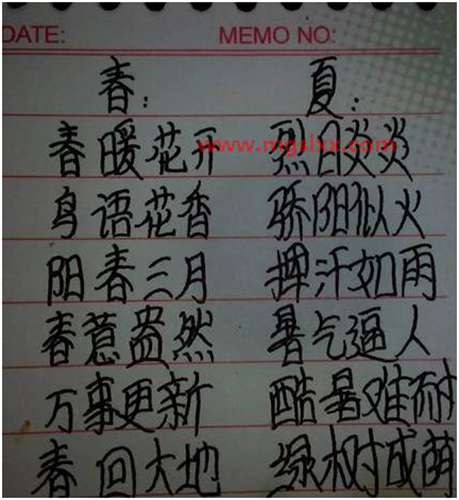 DATE: MEMO NO:
春: 夏:
春暖花开 烈日炎炎
鸟语花香 骄阳似火
阳春三月 挥汗如雨
春意盎然 暑气逼人
万事更新 酷暑难耐
春回大地 绿树成